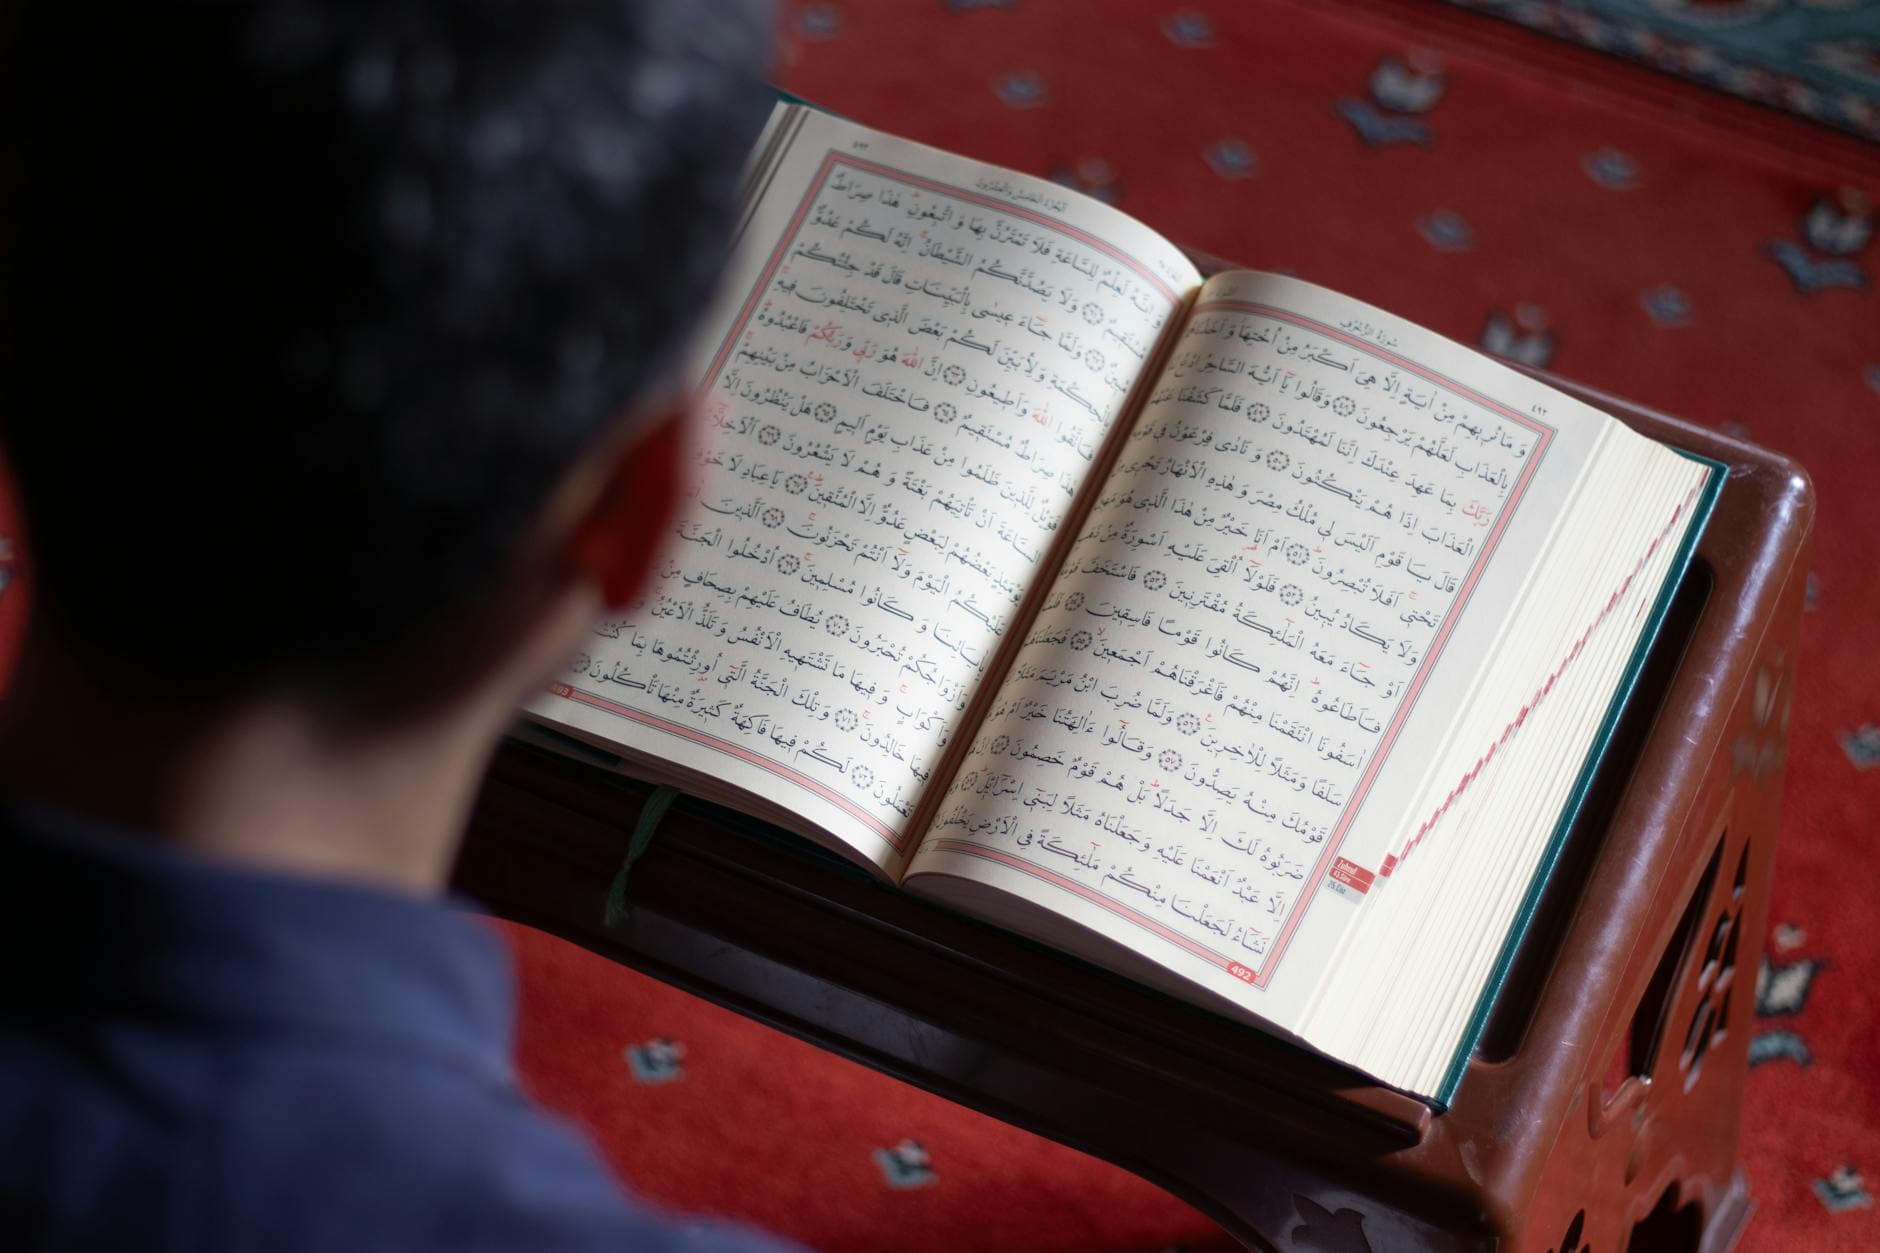 ٤٩٢
سُورَةُ الزُّخْرُفِ
وَمَا نُرِيهِمْ مِنْ اٰيَةٍ اِلَّا هِيَ اَكْبَرُ مِنْ اُخْتِهَا وَاَخَذْنَا
بِالْعَذَابِ لَعَلَّهُمْ يَرْجِعُونَ ٤٨ وَقَالُوا يَٓا اَيُّهَ السَّاحِرُ ادْعُ
رَبَّكَ بِمَا عَهِدَ عِنْدَكَ اِنَّنَا لَمُهْتَدُونَ ٤٩ فَلَمَّا كَشَفْنَا عَنْهُمُ
الْعَذَابَ اِذَا هُمْ يَنْكُثُونَ ٥٠ وَنَادٰى فِرْعَوْنُ فِي
قَالَ يَا قَوْمِ اَلَيْسَ لِي مُلْكُ مِصْرَ وَهٰذِهِ الْاَنْهَارُ تَجْرِي
تَحْتِي اَفَلَا تُبْصِرُونَ ٥١ اَمْ اَنَا۬ خَيْرٌ مِنْ هٰذَا الَّذِي هُوَ
وَلَا يَكَادُ يُبِينُ ٥٢ فَلَوْلَٓا اُلْقِيَ عَلَيْهِ اَسْوِرَةٌ مِنْ
اَوْ جَٓاءَ مَعَهُ الْمَلٰٓئِكَةُ مُقْتَرِنِينَ ٥٣ فَاسْتَخَفَّ قَوْمَهُ
فَاَطَاعُوهُ اِنَّهُمْ كَانُوا قَوْمًا فَاسِقِينَ ٥٤
اٰسَفُونَا انْتَقَمْنَا مِنْهُمْ فَاَغْرَقْنَاهُمْ اَجْمَعِينَ ٥٥ فَجَعَلْنَاهُمْ
سَلَفًا وَمَثَلًا لِلْاٰخِرِينَ ٥٦ وَلَمَّا ضُرِبَ ابْنُ مَرْيَمَ مَثَلًا
قَوْمُكَ مِنْهُ يَصِدُّونَ ٥٧ وَقَالُٓوا ءَاٰلِهَتُنَا خَيْرٌ اَمْ هُوَ
ضَرَبُوهُ لَكَ اِلَّا جَدَلًا بَلْ هُمْ قَوْمٌ خَصِمُونَ ٥٨ اِنْ
اِلَّا عَبْدٌ اَنْعَمْنَا عَلَيْهِ وَجَعَلْنَاهُ مَثَلًا لِبَنِٓي اِسْرَٓائِلَ ٥٩
نَشَٓاءُ لَجَعَلْنَا مِنْكُمْ مَلٰٓئِكَةً فِي الْاَرْضِ يَخْلُفُونَ
492
Zuhruf
43.Sûre
25.Cüz
٤٩٣
اَلْجُزْءُ الْخَامِسُ وَالْعِشْرُونَ
وَاِنَّهُ لَعِلْمٌ لِلسَّاعَةِ فَلَا تَمْتَرُنَّ بِهَا وَاتَّبِعُونِ هٰذَا صِرَاطٌ
مُسْتَقِيمٌ ٦١ وَلَا يَصُدَّنَّكُمُ الشَّيْطَانُ اِنَّهُ لَكُمْ عَدُوٌّ
مُبِينٌ ٦٢ وَلَمَّا جَٓاءَ عِيسٰى بِالْبَيِّنَاتِ قَالَ قَدْ جِئْتُكُمْ
بِالْحِكْمَةِ وَلِاُبَيِّنَ لَكُمْ بَعْضَ الَّذِي تَخْتَلِفُونَ فِيهِ
فَاتَّقُوا اللّٰهَ وَاَطِيعُونِ ٦٣ اِنَّ اللّٰهَ هُوَ رَبِّي وَرَبُّكُمْ فَاعْبُدُوهُ
هٰذَا صِرَاطٌ مُسْتَقِيمٌ ٦٤ فَاخْتَلَفَ الْاَحْزَابُ مِنْ بَيْنِهِمْ
فَوَيْلٌ لِلَّذِينَ ظَلَمُوا مِنْ عَذَابِ يَوْمٍ اَلِيمٍ ٦٥ هَلْ يَنْظُرُونَ اِلَّا
السَّاعَةَ اَنْ تَأْتِيَهُمْ بَغْتَةً وَهُمْ لَا يَشْعُرُونَ ٦٦ اَلْاَخِلَّٓاءُ
يَوْمَئِذٍ بَعْضُهُمْ لِبَعْضٍ عَدُوٌّ اِلَّا الْمُتَّقِينَ ٦٧ يَا عِبَادِ لَا خَوْفٌ
عَلَيْكُمُ الْيَوْمَ وَلَٓا اَنْتُمْ تَحْزَنُونَ ٦٨ اَلَّذِينَ
بِاٰيَاتِنَا وَكَانُوا مُسْلِمِينَ ٦٩ اُدْخُلُوا الْجَنَّةَ
وَاَزْوَاجُكُمْ تُحْبَرُونَ ٧٠ يُطَافُ عَلَيْهِمْ بِصِحَافٍ مِنْ
وَاَكْوَابٍ وَفِيهَا مَا تَشْتَهِيهِ الْاَنْفُسُ وَتَلَذُّ الْاَعْيُنُ
فِيهَا خَالِدُونَ ٧١ وَتِلْكَ الْجَنَّةُ الَّتِٓي اُورِثْتُمُوهَا بِمَا كُنْتُمْ
تَعْمَلُونَ ٧٢ لَكُمْ فِيهَا فَاكِهَةٌ كَثِيرَةٌ مِنْهَا تَأْكُلُونَ
493